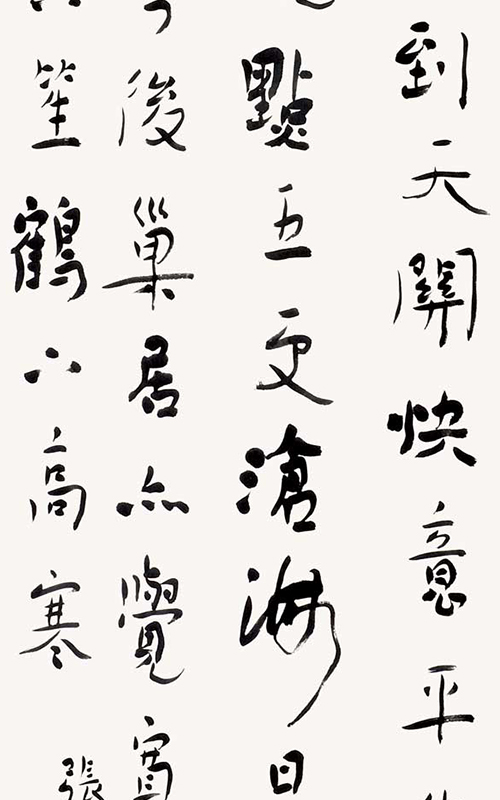 到天關快意平
點五更滄海日
後巢居亦覺
笙鶴下高寒
張